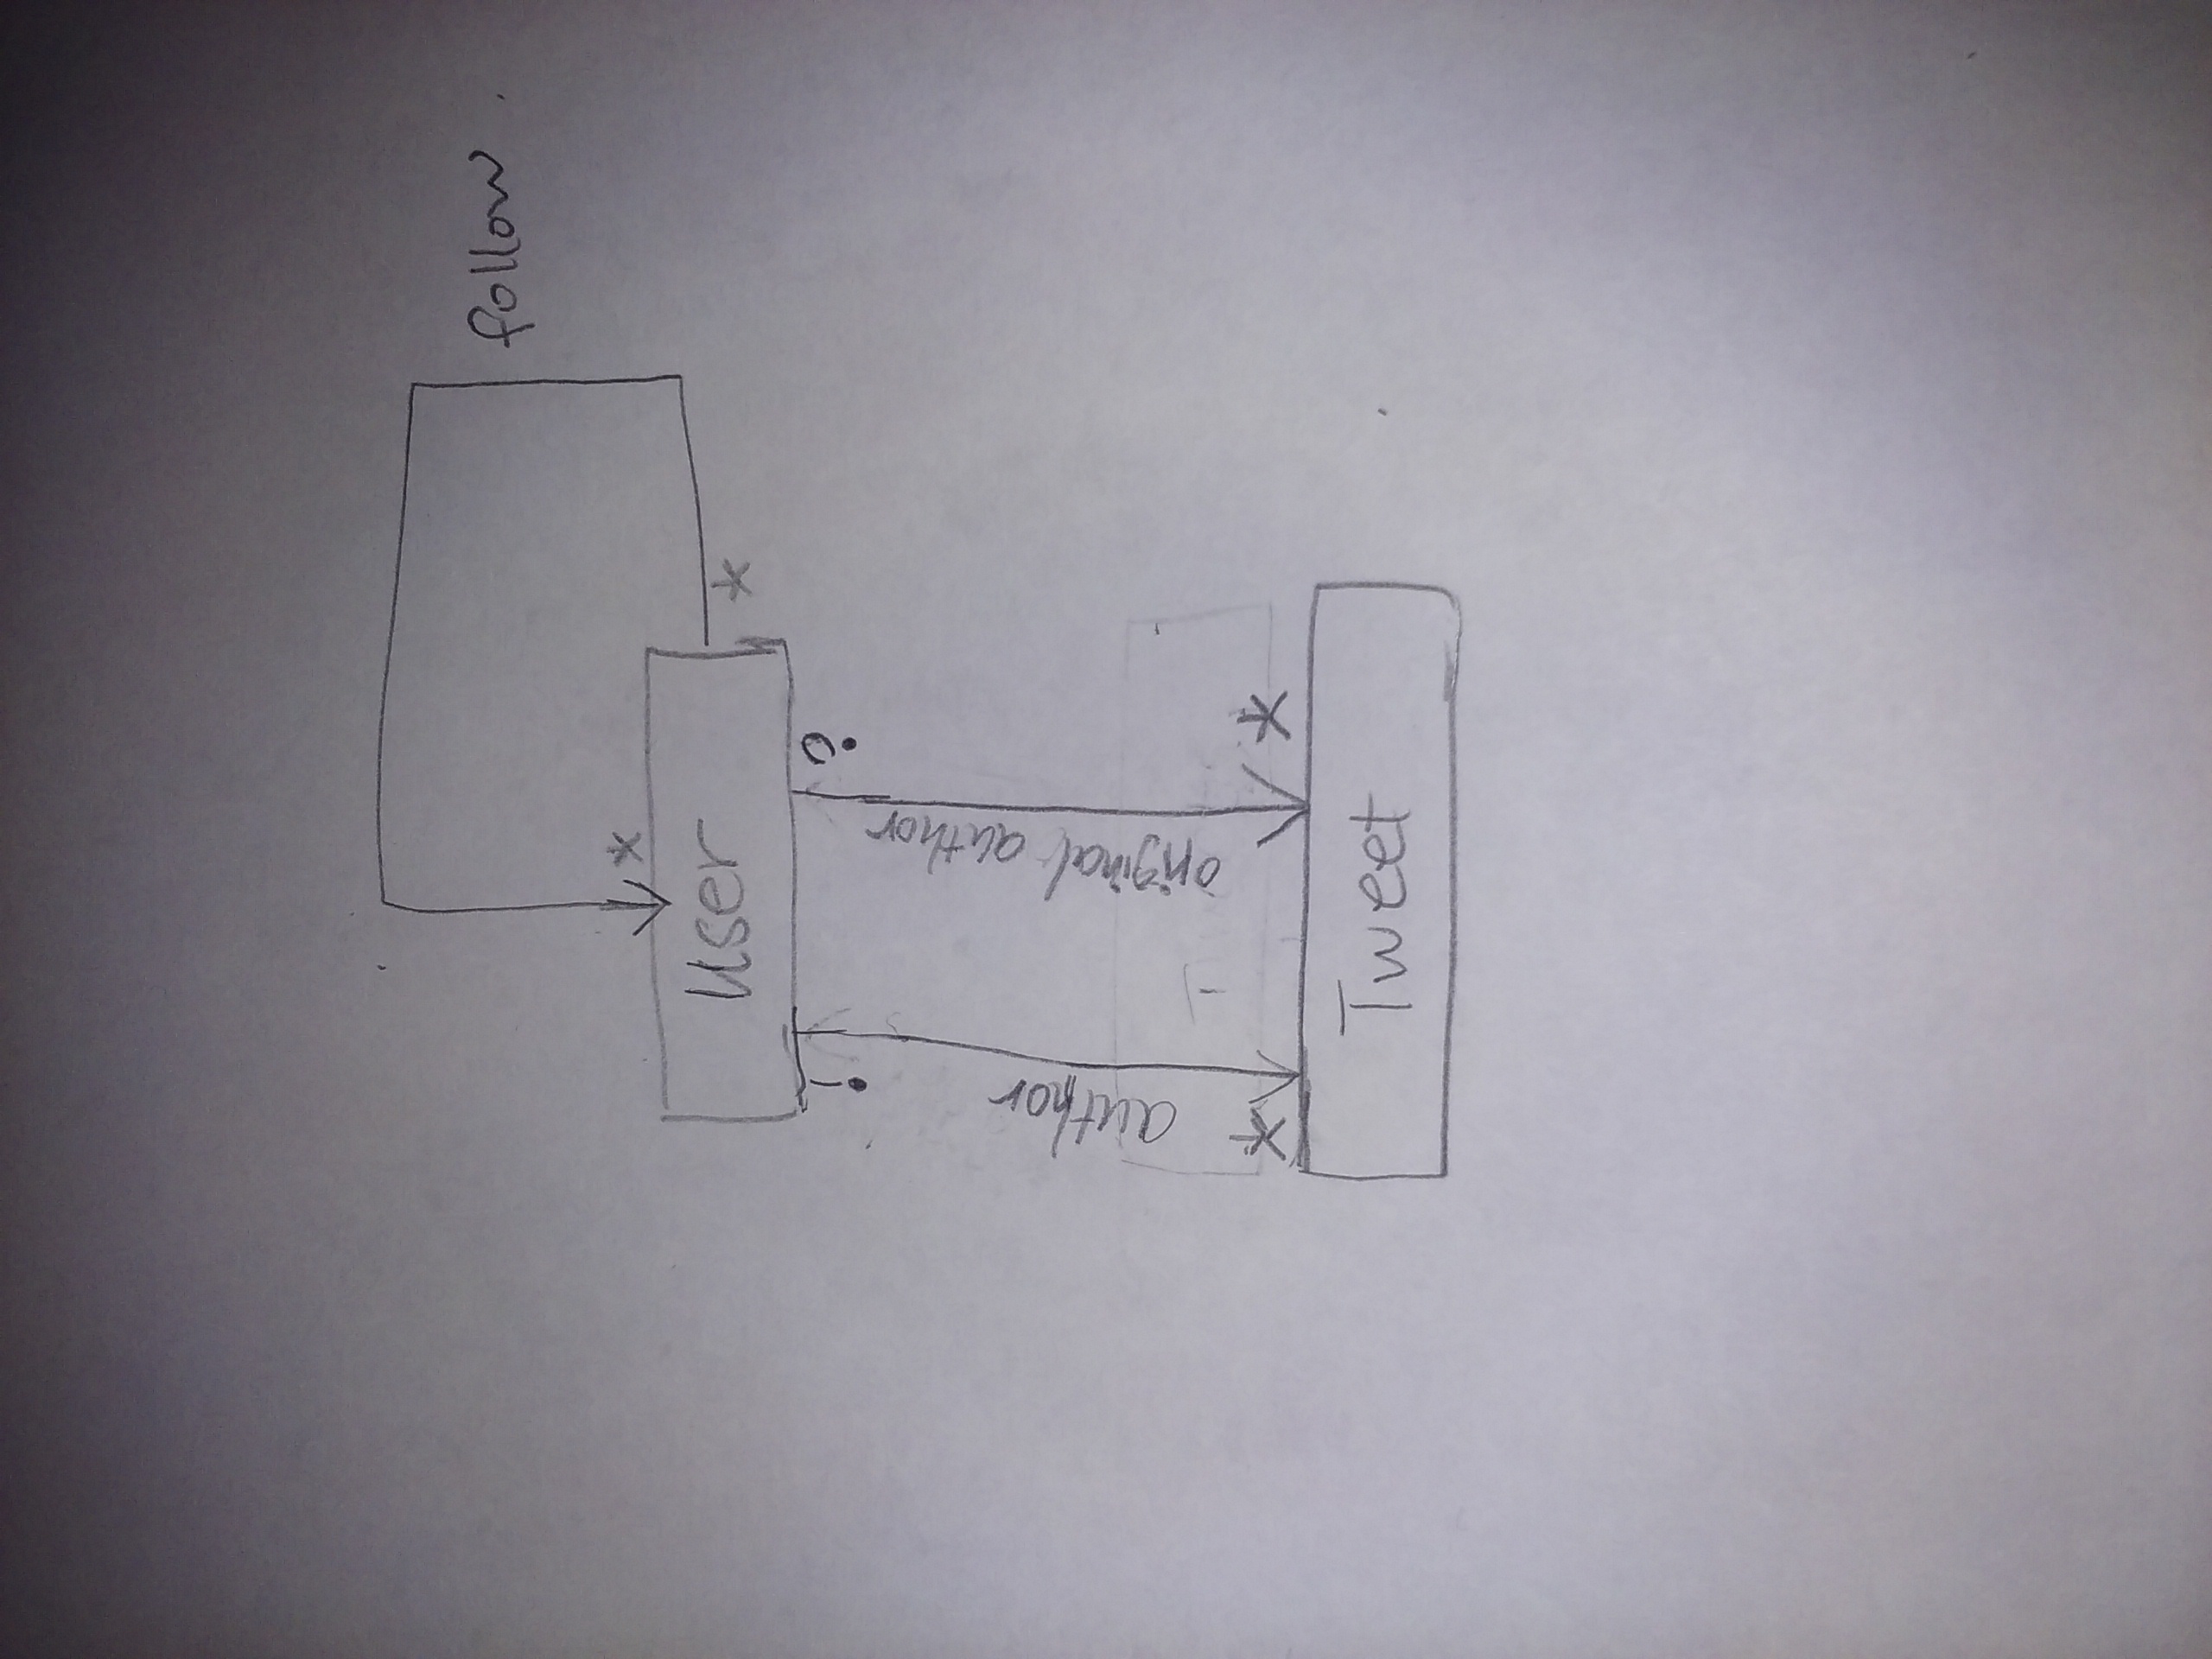 follow
*
User
*
!
?
author
original author
*
*
Tweet